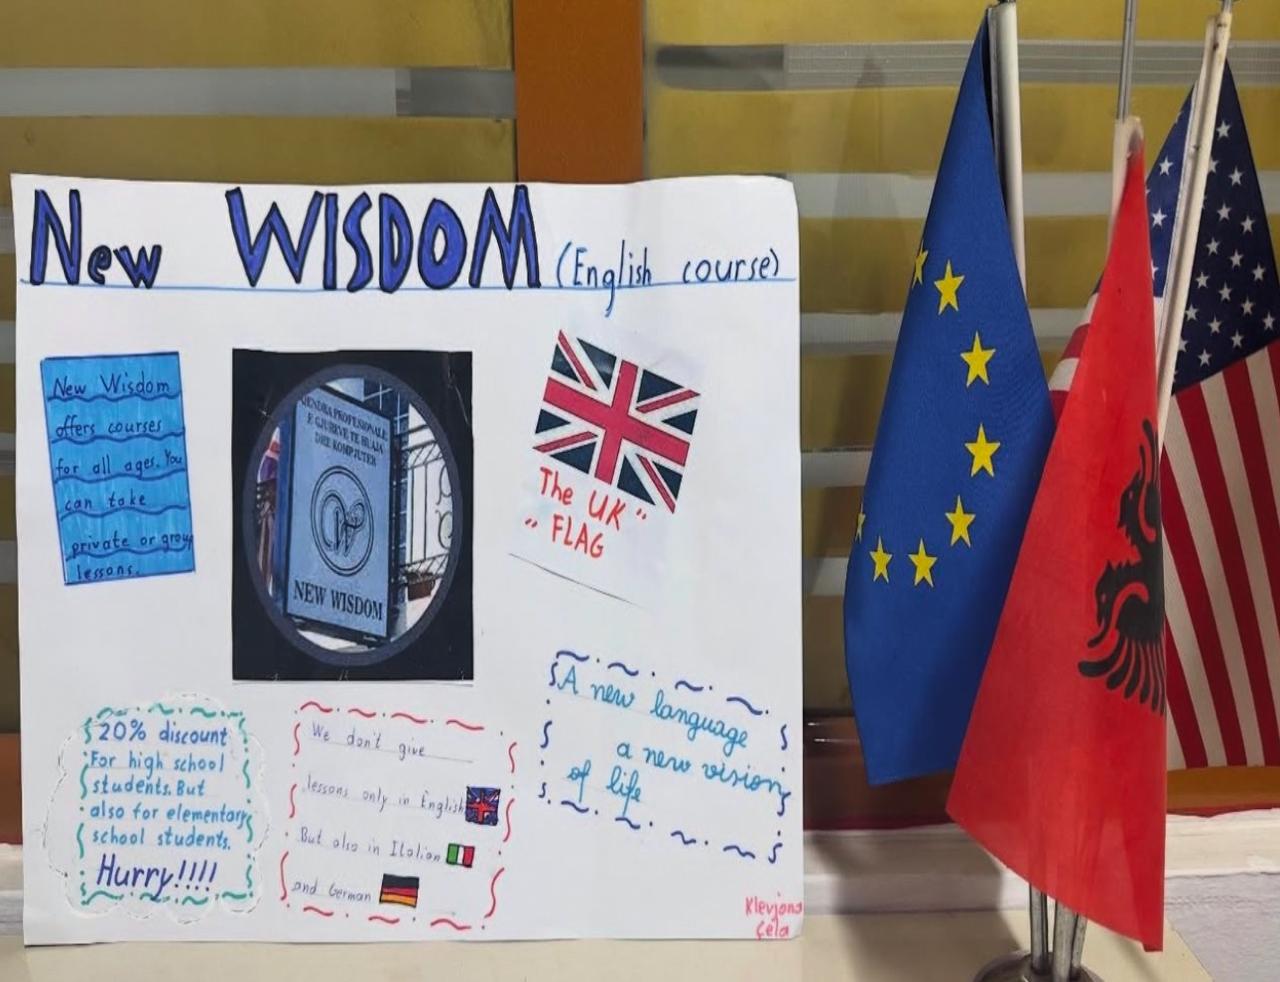 New WISDOM (English course)
New Wisdom
offers courses
for all ages. You
can take
private or group
lessons.
QENDRA PROFESIONALE
E GJUHEVE TE HUAJA
DHE KOMPJUTER
NEW WISDOM
The UK
" FLAG "
20% discount
For high school
students. But
also for elementary
school students.
Hurry!!!!
We don't give
lessons only in English
But also in Italian
and German
A new language
a new vision
of life
Klevjona
Çela